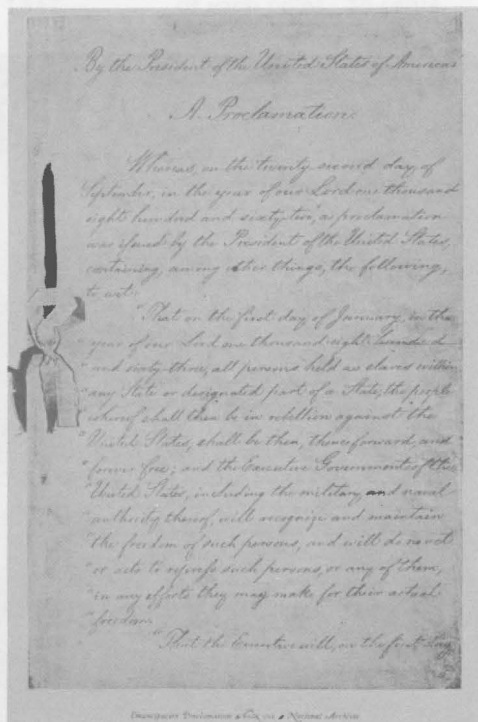 By the President of the United States of America:
A Proclamation.
Whereas, on the twenty-second day of
September, in the year of our Lord one thousand
eight hundred and sixty-two, a proclamation
was issued by the President of the United States,
containing, among other things, the following,
to wit:
"That on the first day of January, in the
"year of our Lord one thousand eight hundred
"and sixty-three, all persons held as slaves within
"any State or designated part of a State, the people
"whereof shall then be in rebellion against the
"United States, shall be then, thenceforward, and
"forever free; and the Executive Government of the
"United States, including the military and naval
"authority thereof, will recognize and maintain
"the freedom of such persons, and will do no act
"or acts to repress such persons, or any of them,
"in any efforts they may make for their actual
"freedom.
"That the Executive will, on the first day
Emancipation Proclamation National Archives